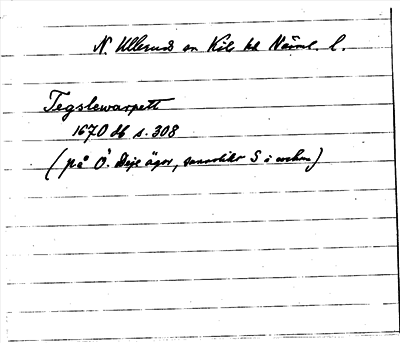 N. Ullerud sn Kils hd Värml. l.
Tegslewarpett
1670 db s. 308
(på Ö. Deje ägor, sannolikt S i socknen)